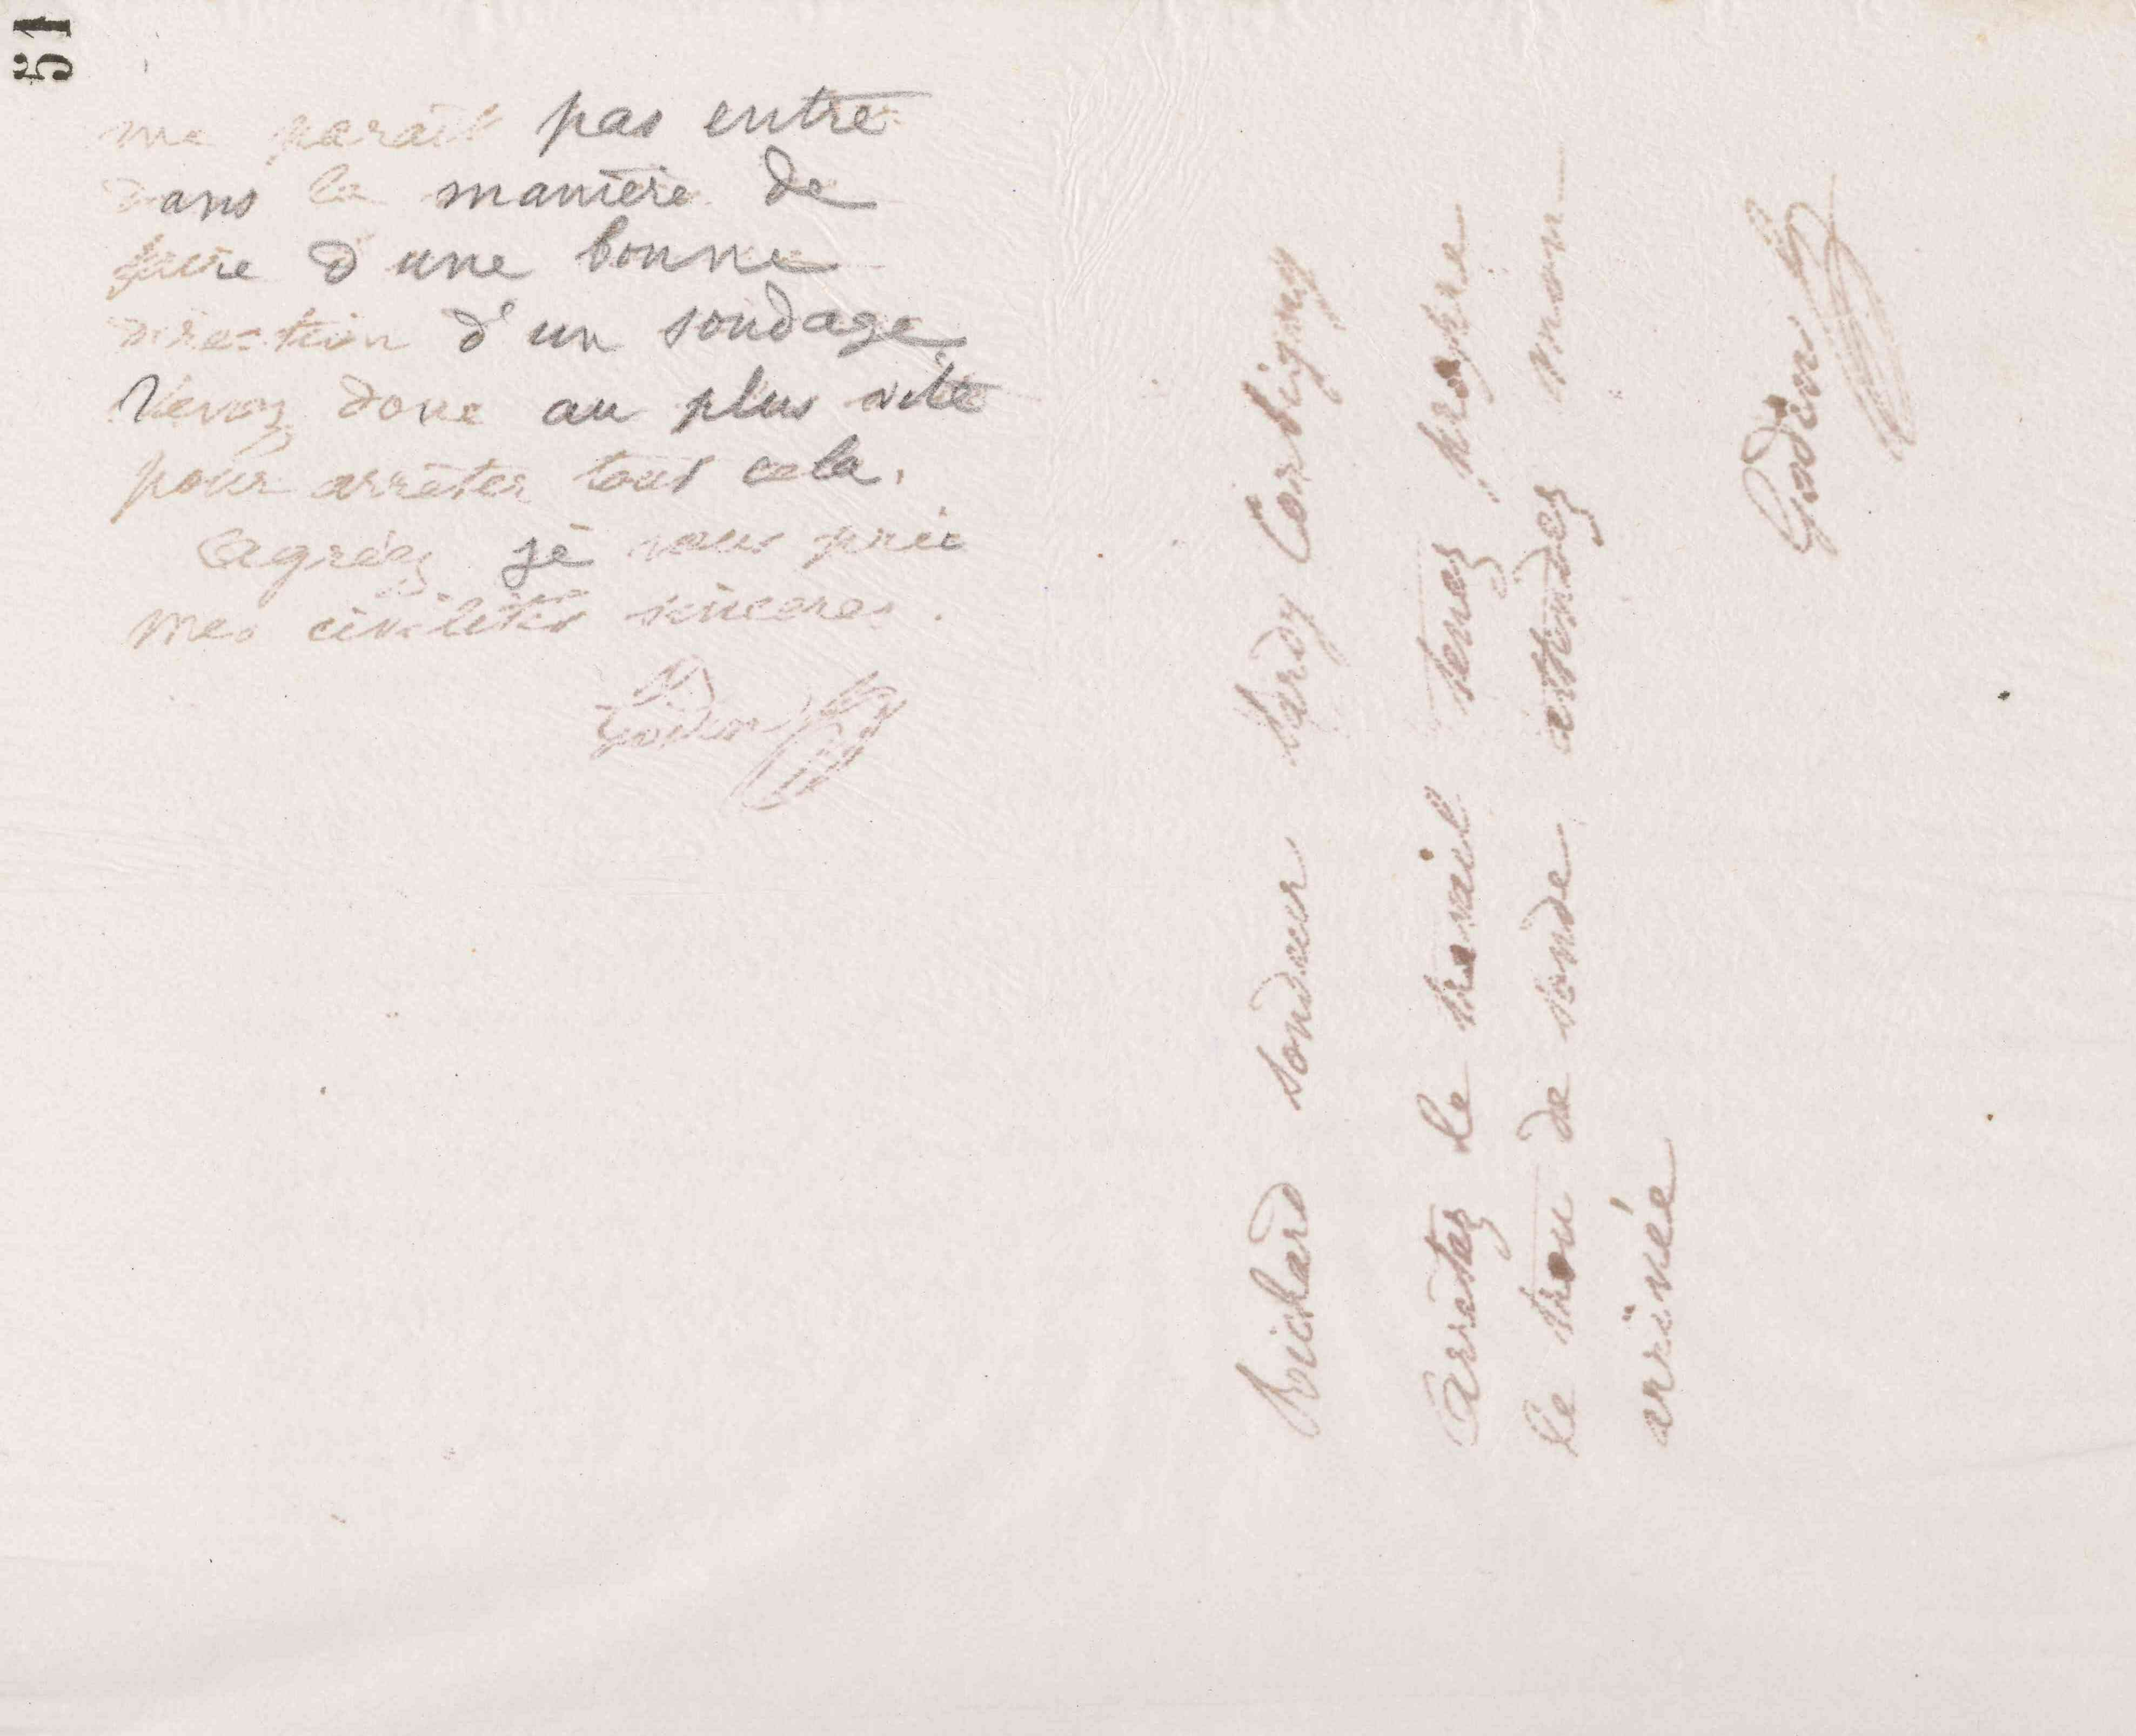 51
me paraît pas entré
dans la manière de
faire d'une bonne
direction d'un sondage
Venez donc au plus vite
pour arrêter tout cela.
Agréez je vous prie
mes civilités sincères.
Godin
Richard sondeur Sardy Corbigny
Arrêtez le travail tenez propre
le trou de sonde attendez mon
arrivée
Godin